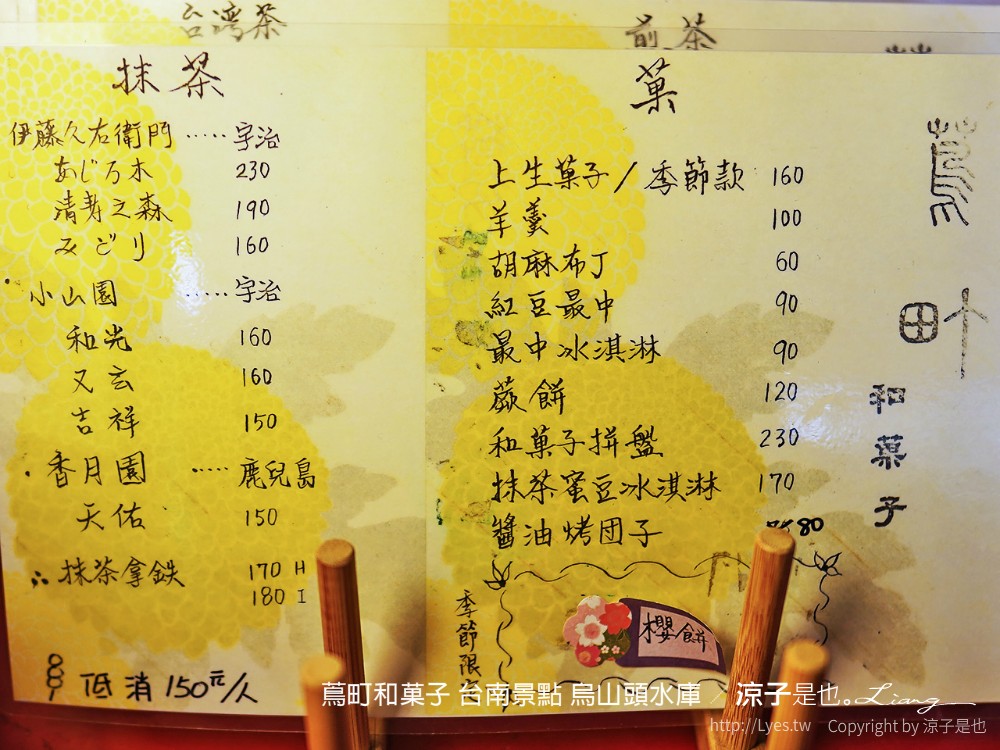 台湾茶
煎茶
抹茶
伊藤久右衛門 ······宇治
あじろ木 230
清寿之森 190
みどり 160
·小山園 ······宇治
和光 160
又玄 160
吉祥 150
·香月園 ·····鹿兒島
天佑 150
∴抹茶拿鉄 170 H
180 I
低消150元/人
菓
上生菓子/季節款 160
羊羹 100
胡麻布丁 60
紅豆最中 90
最中冰淇淋 90
蕨餅 120
和菓子拼盤 230
抹茶蜜豆冰淇淋 170
醬油烤団子 80
季節限
櫻餅
蔦町
和菓子
蔦町和菓子 台南景點 烏山頭水庫 / 涼子是也。Liang
http://Lyes.tw Copyright by 涼子是也